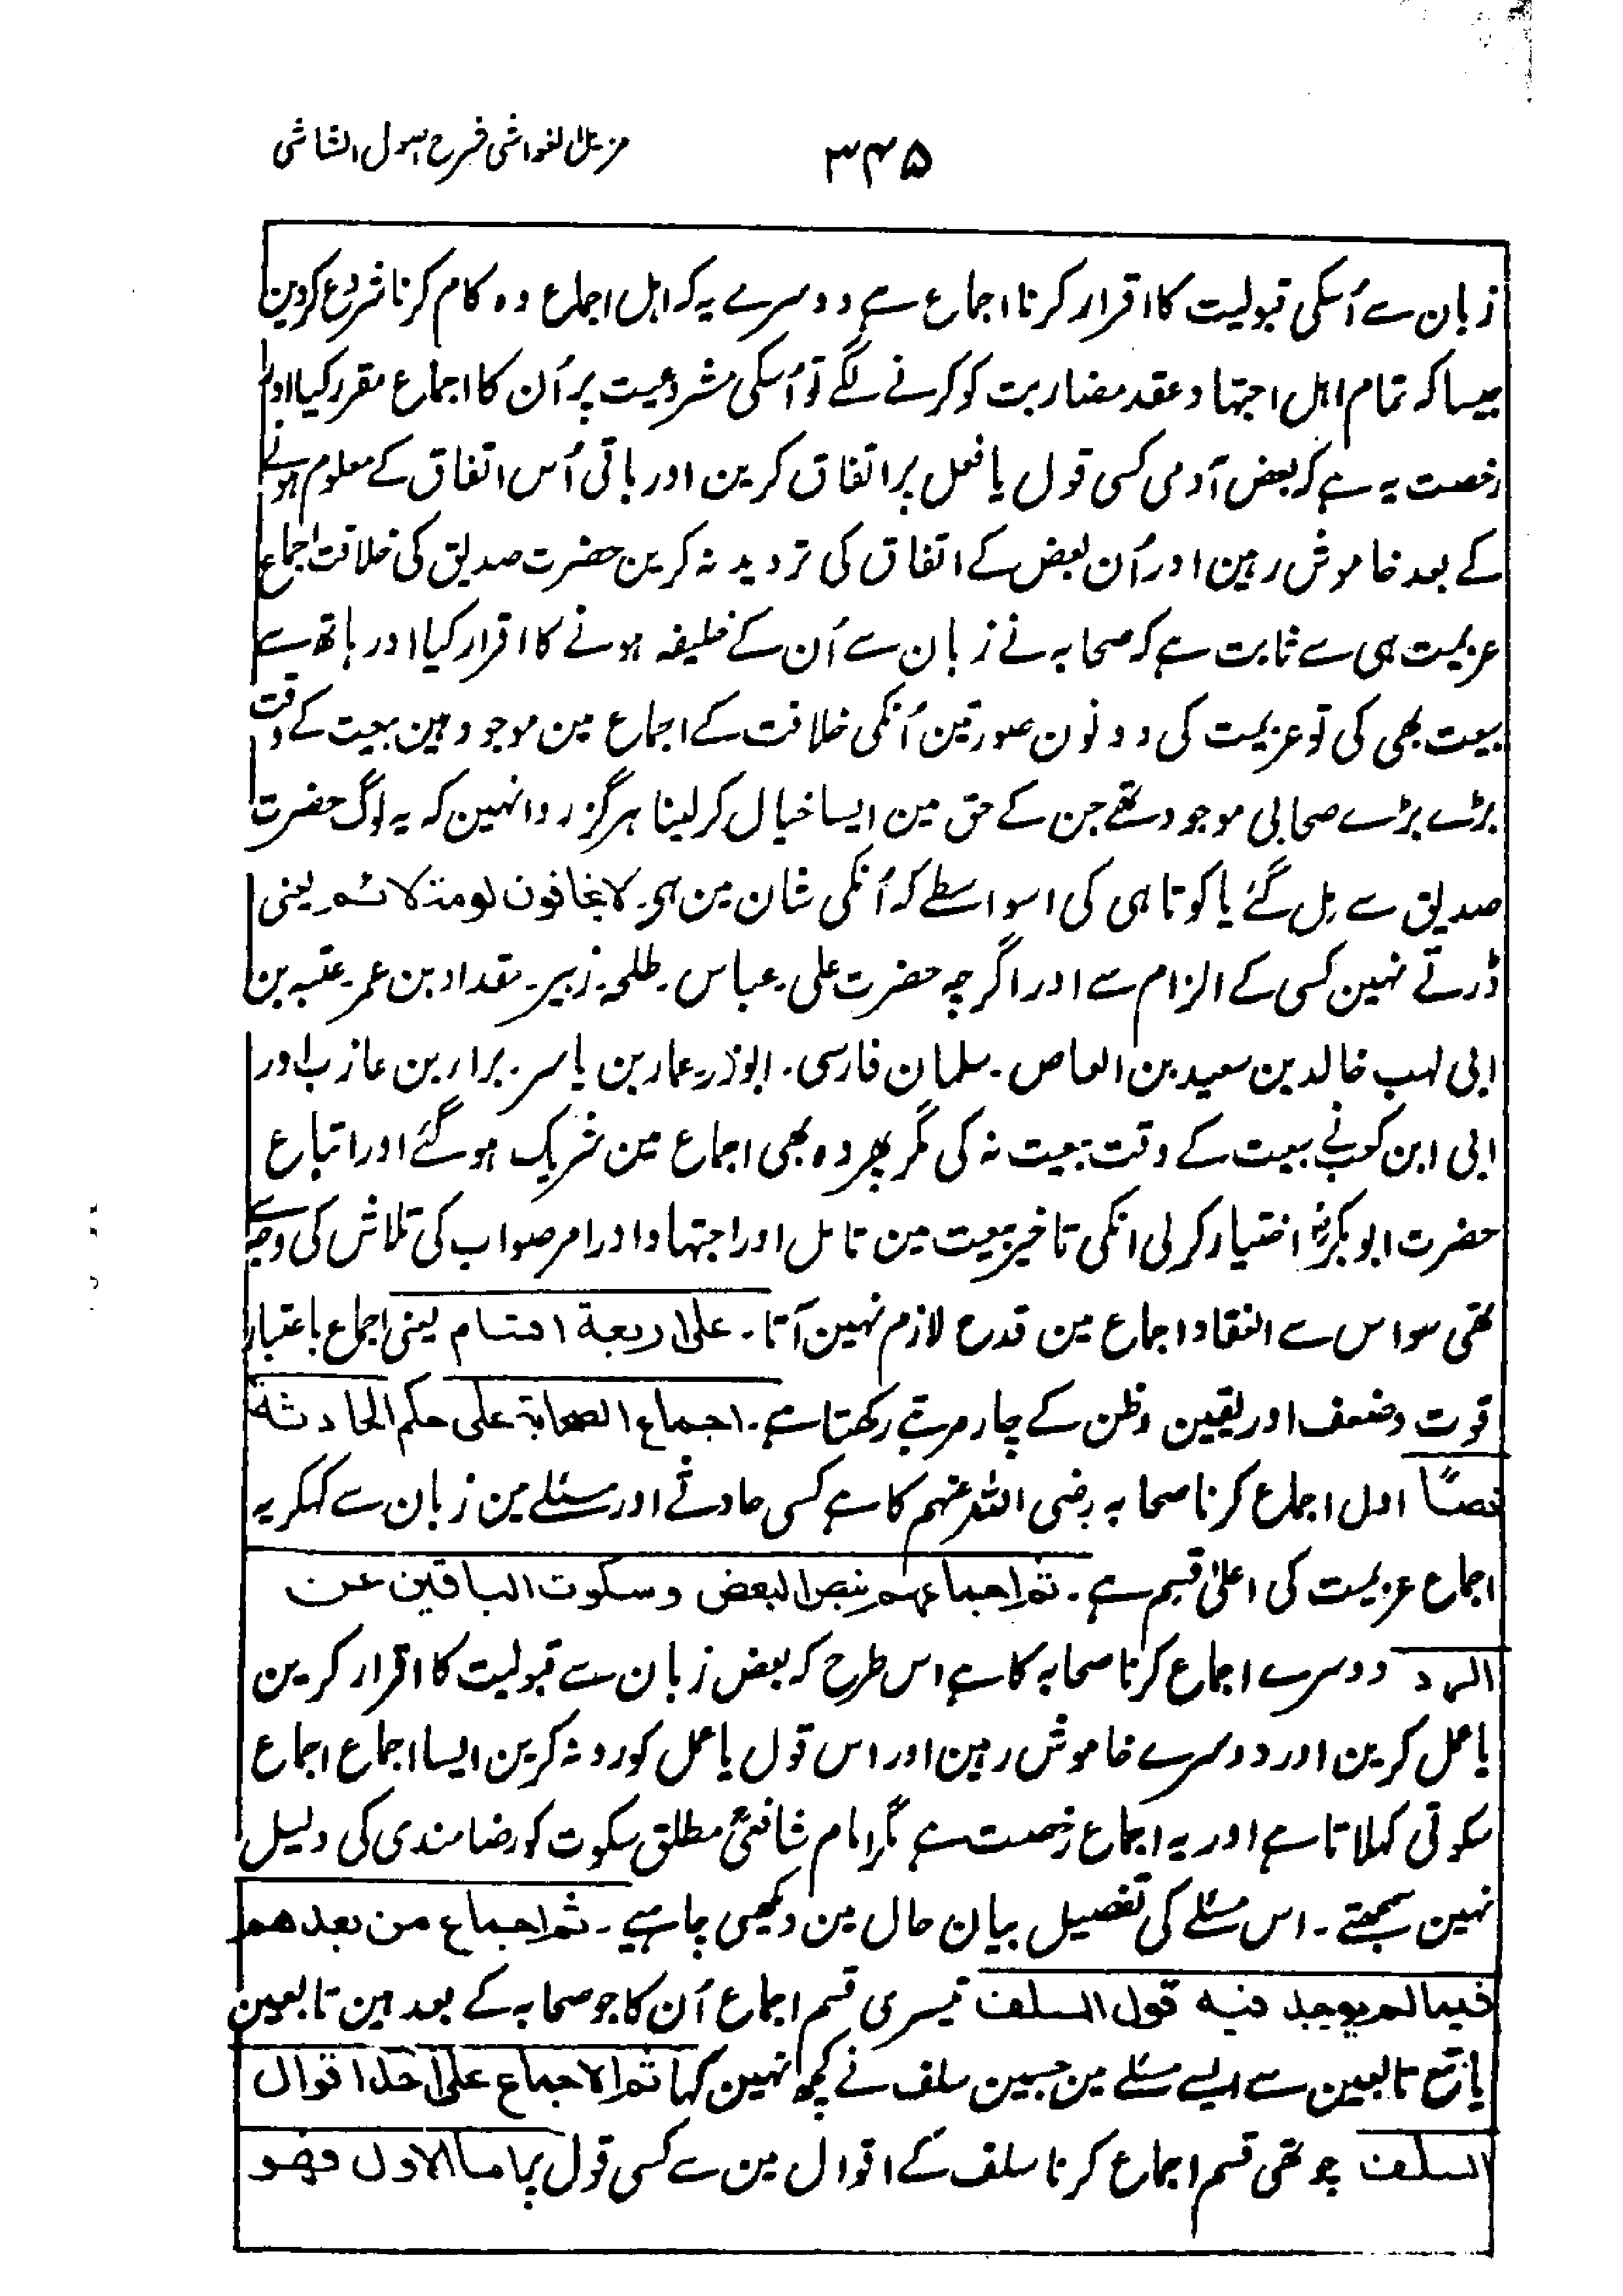 مزیل الغواشی شرح اصول الشاشی
۳۴۵
زبان سے اُسکی قبولیت کا اقرار کرنا اجماع ہے دوسرے یہ کہ اہل اجماع وہ کام کرنا شروع کردین
جیسا کہ تمام اہل اجتہاد عقد مضاربت کو کرنے لگے تو اُسکی مشروعیت پر اُن کا اجماع مقرر کیا اور
رخصت یہ ہے کہ بعض آدمی کسی قول یا فعل پر اتفاق کرین اور باقی اُس اتفاق کے معلوم ہونے
کے بعد خاموش رہین اور اُن بعض کے اتفاق کی تردید نہ کرین حضرت صدیق کی خلافت اجماع
عزیمت ہی سے ثابت ہے کہ صحابہ نے زبان سے اُن کے خلیفہ ہونے کا اقرار کیا اور ہاتھ سے
بیعت بھی کی تو عزیمت کی دونون صورتین اُنکی خلافت کے اجماع مین موجود ہین بیعت کے وقت
بڑے بڑے صحابی موجود تھے جن کے حق مین ایسا خیال کرلینا ہرگز روا نہین کہ یہ لوگ حضرت
صدیق سے مل گئے یا کوتاہی کی اسواسطے کہ اُنکی شان مین ہی۔ لا یخافون لومة لائم یعنی
ڈرتے نہین کسی کے الزام سے اور اگرچہ حضرت علی۔ عباس۔ طلحہ۔ زبیر۔ مقداد بن عمر۔ عتبہ بن
ابی لہب خالد بن سعید بن العاص۔ سلمان فارسی۔ ابوذر۔ عمار بن یاسر۔ براء بن عازب اور
ابی ابن کعب نے بیعت کے وقت بیعت نہ کی مگر پھر وہ بھی اجماع مین شریک ہوگئے اور اتباع
حضرت ابوبکرؓ اختیار کرلی انکی تاخیر بیعت مین تامل اور اجتہاد اور امر صواب کی تلاش کی وجہ سے
تھی سو اس سے انعقاد اجماع مین قدح لازم نہین آتا۔ علی اربعة اقسام یعنی اجماع باعتبار
قوت وضعف اور یقین وظن کے چار مرتبے رکھتا ہے۔ اجماع الصحابة علی حکم الحادثة
نصًا اول اجماع کرنا صحابہ رضی اللہ عنہم کا ہے کسی حادثے اور مسئلے مین زبان سے کہکر یہ
اجماع عزیمت کی اعلیٰ قسم ہے۔ ثم اجماعہم بنص البعض وسکوت الباقین عن
الرد دوسرے اجماع کرنا صحابہ کا ہے اس طرح کہ بعض زبان سے قبولیت کا اقرار کرین
یا عمل کرین اور دوسرے خاموش رہین اور اس قول یا عمل کو رد نہ کرین ایسا اجماع اجماع
سکوتی کہلاتا ہے اور یہ اجماع رخصت ہے مگر امام شافعیؒ مطلق سکوت کو رضامندی کی دلیل
نہین سمجھتے۔ اس مسئلے کی تفصیل بیان حال مین دیکھنی چاہیے۔ ثم اجماع من بعدھم
فیما لم یوجد فیه قول السلف تیسری قسم اجماع اُن کا جو صحابہ کے بعد ہین تابعین
یا تبع تابعین سے ایسے مسئلے مین جسین سلف نے کچھ نہین کہا ثم الاجماع علی احد اقوال
السلف چوتھی قسم اجماع کرنا سلف کے اقوال مین سے کسی قول پر اما الاول فھو